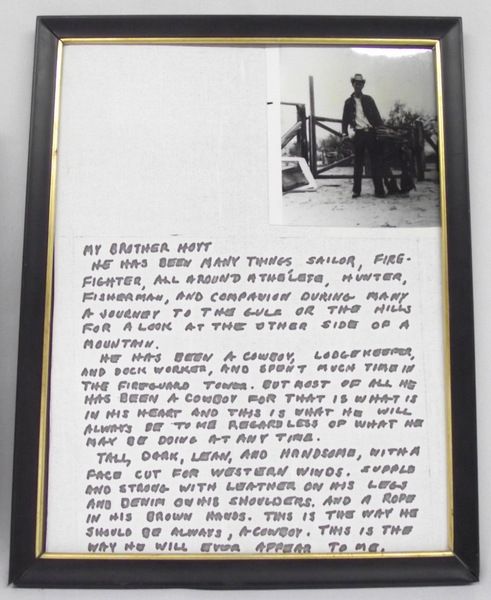 MY BROTHER HOYT
HE HAS BEEN MANY THINGS SAILOR, FIRE-
FIGHTER, ALL AROUND ATHELETE, HUNTER,
FISHERMAN, AND COMPANION DURING MANY
A JOURNEY TO THE GULF OR THE HILLS
FOR A LOOK AT THE OTHER SIDE OF A
MOUNTAIN.
HE HAS BEEN A COWBOY, LODGEKEEPER,
AND DOCK WORKER, AND SPENT MUCH TIME IN
THE FIREGUARD TOWER. BUT MOST OF ALL HE
HAS BEEN A COWBOY FOR THAT IS WHAT IS
IN HIS HEART AND THIS IS WHAT HE WILL
ALWAYS BE TO ME REGARDLESS OF WHAT HE
MAY BE DOING AT ANY TIME.
TALL, DARK, LEAN, AND HANDSOME, WITH A
FACE CUT FOR WESTERN WINDS. SUPPLE
AND STRONG WITH LEATHER ON HIS LEGS
AND DENIM ON HIS SHOULDERS. AND A ROPE
IN HIS BROWN HANDS. THIS IS THE WAY HE
SHOULD BE ALWAYS, A COWBOY. THIS IS THE
WAY HE WILL EVER APPEAR TO ME.